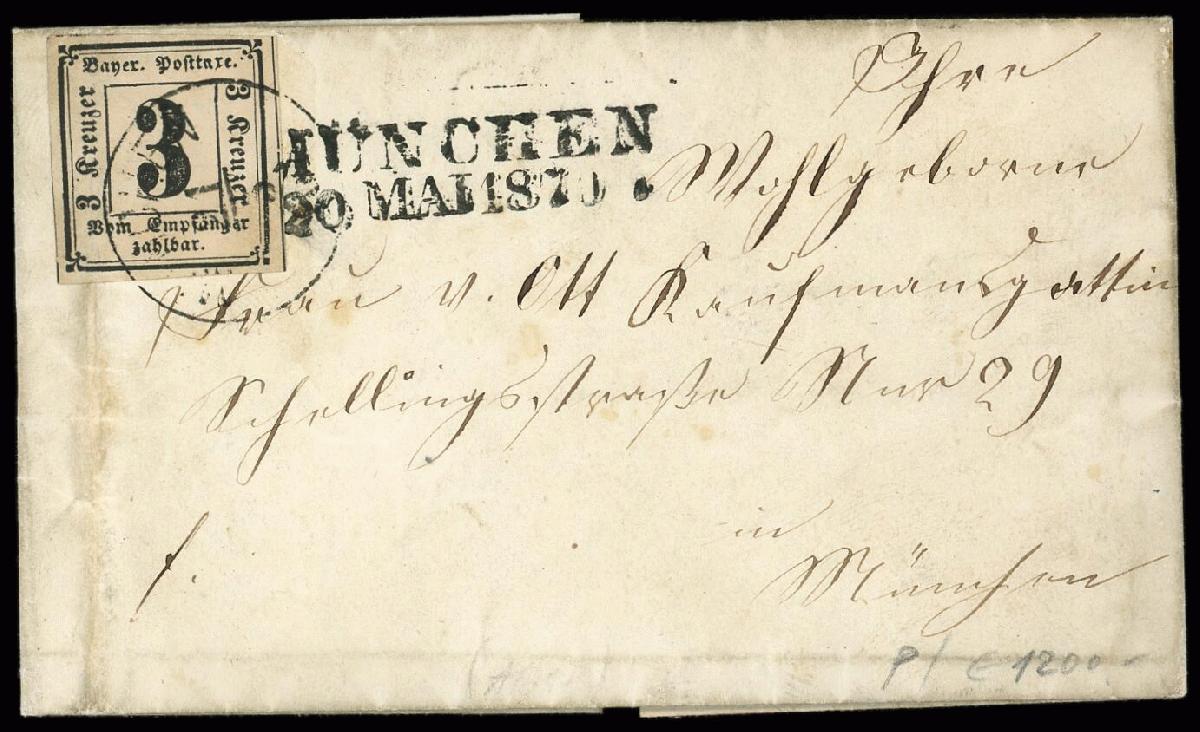 Bayer. Posttaxe.
3 Kreuzer
3
3 Kreuzer
Vom Empfänger
zahlbar.
MÜNCHEN
20 MAI 1870
Ihre
Wohlgeborne
Frau v. Ott Kaufmansgattin
Schellingsstraße Nur 29
in
München
f.
P/ € 1200.-